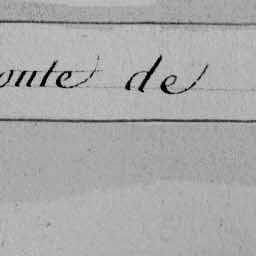 onte de